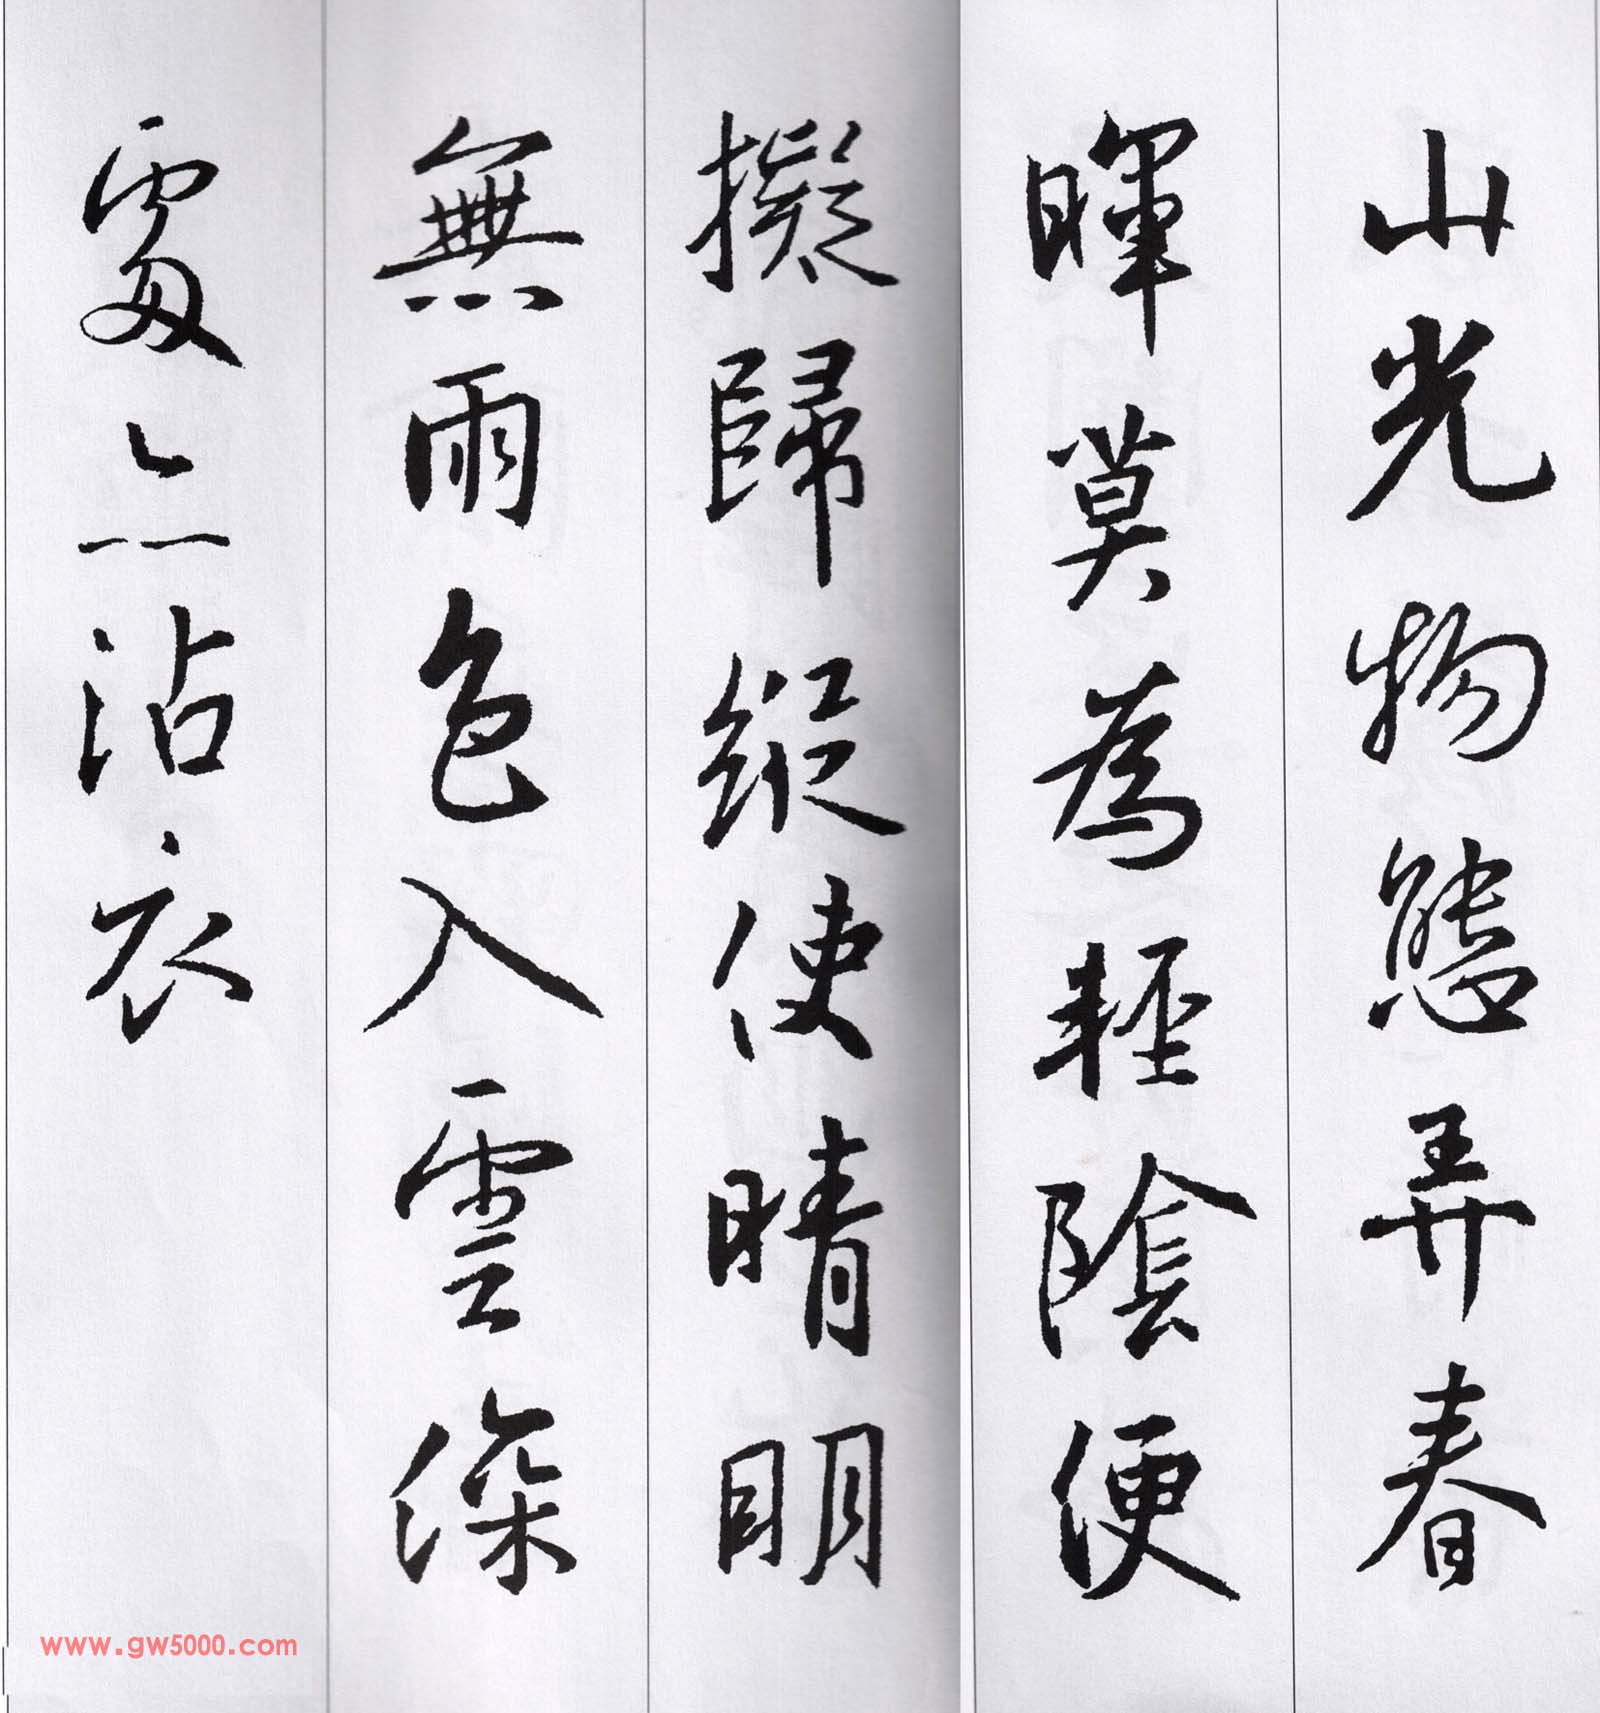 山光物態弄春
暉莫為輕陰便
擬歸縱使晴明
無雨色入雲深
處亦沾衣
www.gw5000.com